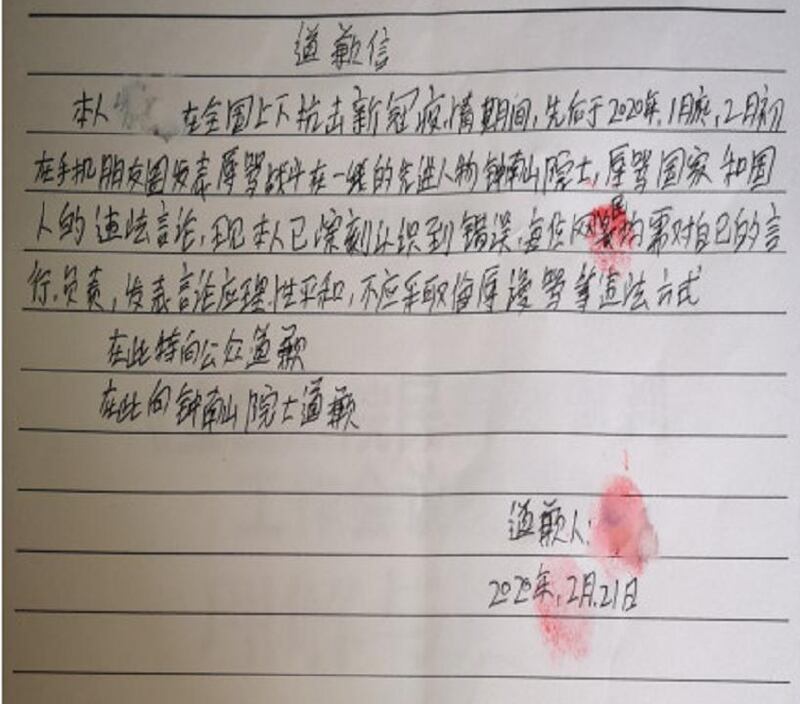 道歉信
本人 在全国上下抗击新冠疫情期间,先后于2020年,1月底,2月初
在手机朋友圈发表辱骂战斗在一线的先进人物钟南山院士,辱骂国家和国
人的违法言论,现本人已深刻认识到错误,每位网民均需对自己的言
行负责,发表言论应理性平和,不应采取侮辱谩骂等违法方式
在此特向公众道歉
在此向钟南山院士道歉
道歉人:
2020年,2月,21日